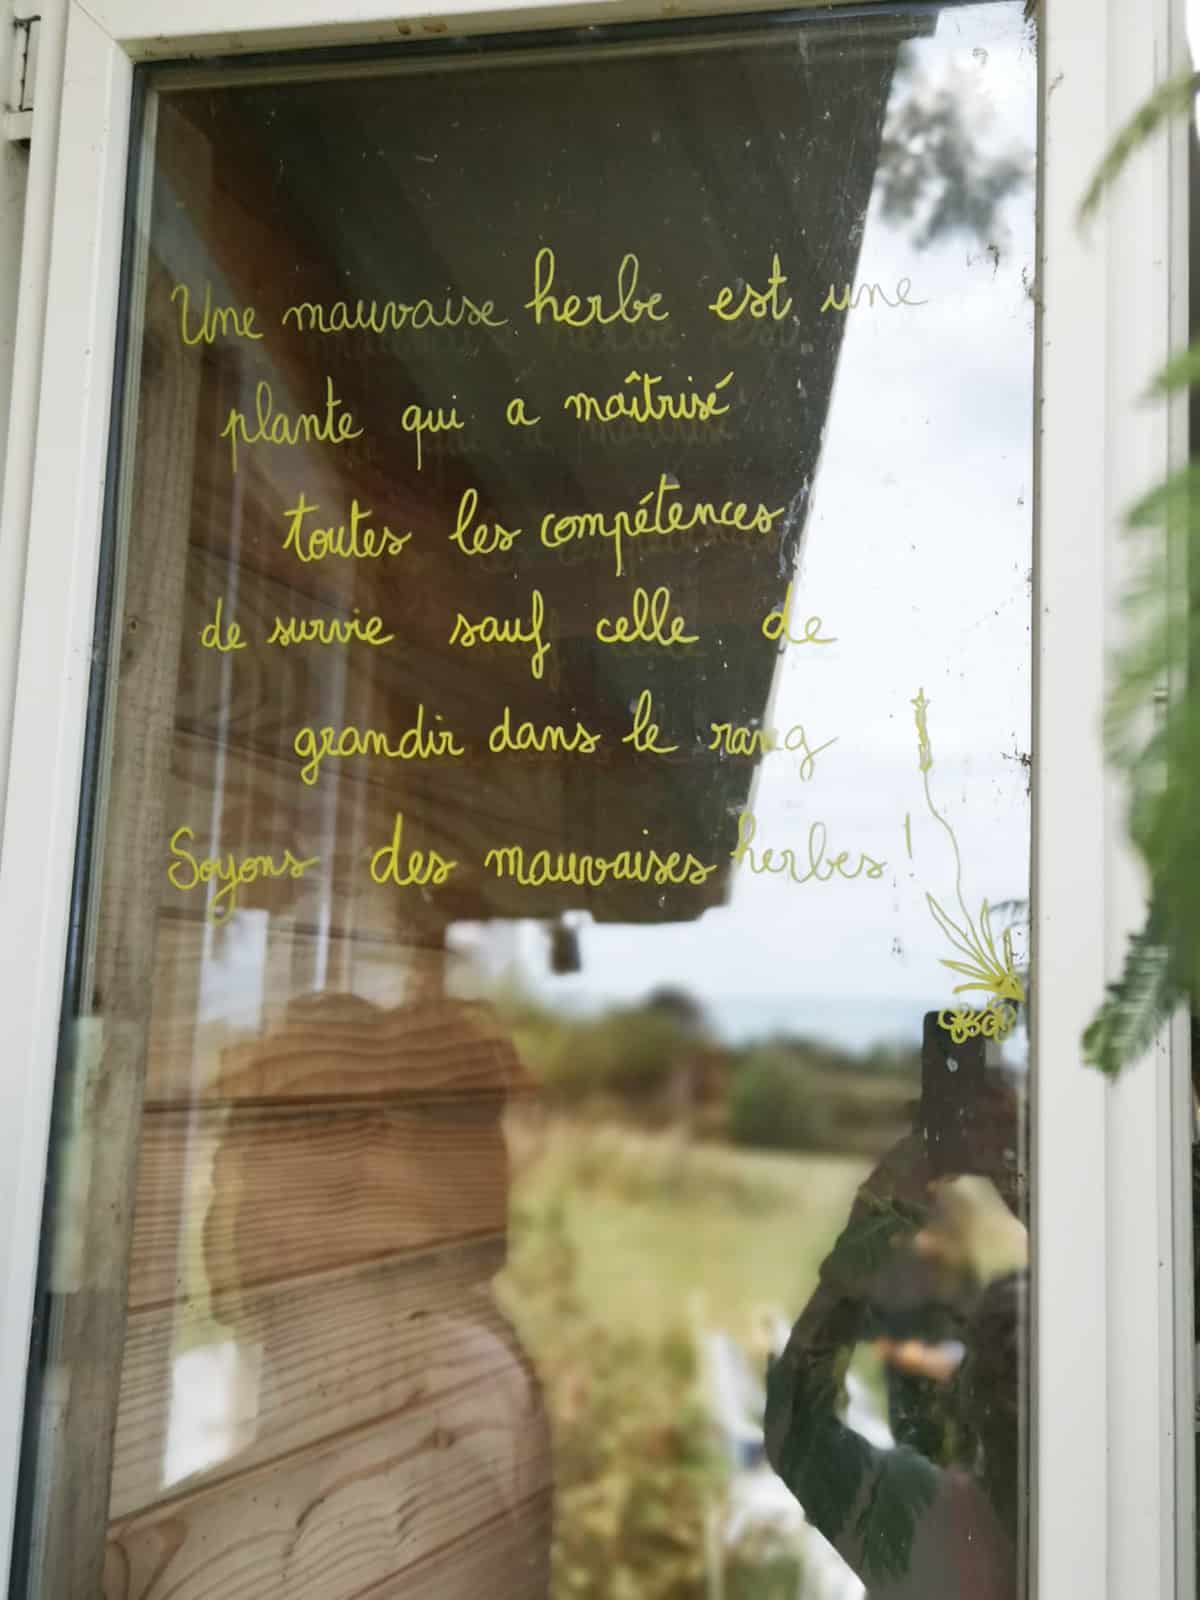 Une mauvaise herbe est une
plante qui a maîtrisé
toutes les compétences
de survie sauf celle de
grandir dans le rang
Soyons des mauvaises herbes !